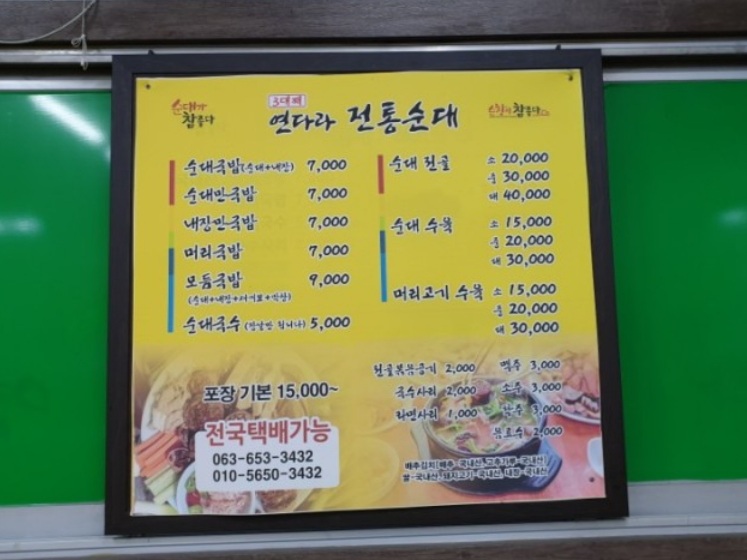 순대가
참좋다
3대째
연다라 전통순대
순창이 참좋다
순대국밥(순대+내장) 7,000
순대만국밥 7,000
내장만국밥 7,000
머리국밥 7,000
모듬국밥 9,000
순대국수 5,000
순대 전골 소 20,000
중 30,000
대 40,000
순대 수육 소 15,000
중 20,000
대 30,000
머리고기 수육 소 15,000
중 20,000
대 30,000
포장 기본 15,000~
전국택배가능
063-653-3432
010-5650-3432
전골볶음공기 2,000
국수사리 2,000
라면사리 1,000
맥주 3,000
소주 3,000
3,000
음료수 2,000
배추김치(배추-국내산, 고추가루-국내산)
쌀-국내산, 돼지고기-국내산, 내장-국내산